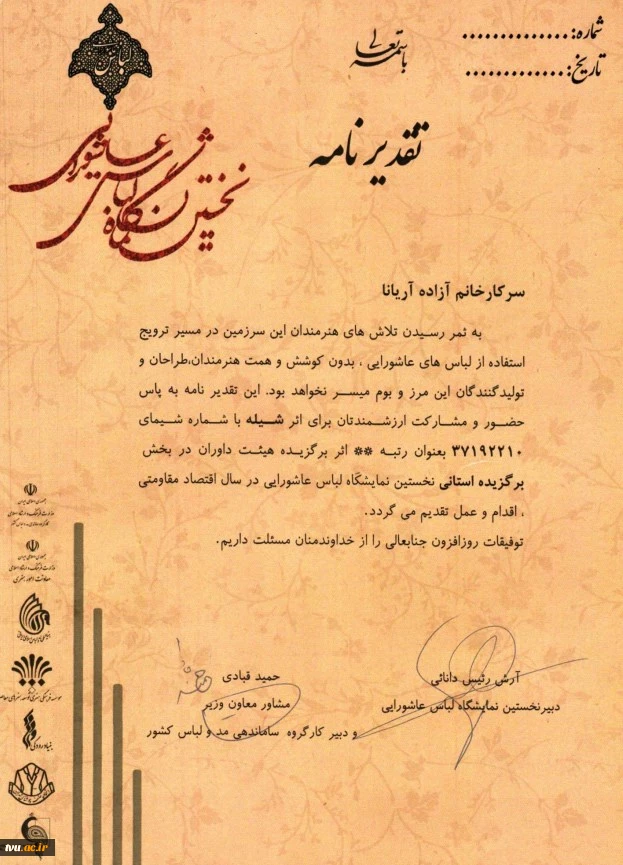 شماره: ..............
تاریخ: .............
باسمه تعالی
لباس
نخستین نمایشگاه لباس عاشورایی
تقدیر نامه
سرکارخانم آزاده آریانا
به ثمر رسیدن تلاش های هنرمندان این سرزمین در مسیر ترویج
استفاده از لباس های عاشورایی ، بدون کوشش و همت هنرمندان،طراحان و
تولیدگنندگان این مرز و بوم میسر نخواهد بود. این تقدیر نامه به پاس
حضور و مشارکت ارزشمندتان برای اثر شیله با شماره شیمای
۳۷۱۹۲۲۱۰ بعنوان رتبه ** اثر برگزیده هیئت داوران در بخش
برگزیده استانی نخستین نمایشگاه لباس عاشورایی در سال اقتصاد مقاومتی
، اقدام و عمل تقدیم می گردد.
توفیقات روزافزون جنابعالی را از خداوندمنان مسئلت داریم.
آرش رئیس دانائی
دبیرنخستین نمایشگاه لباس عاشورایی
حمید قبادی
مشاور معاون وزیر
و دبیر کارگروه ساماندهی مد و لباس کشور
جمهوری اسلامی ایران
وزارت فرهنگ و ارشاد اسلامی
جمهوری اسلامی ایران
وزارت فرهنگ و ارشاد اسلامی
معاونت امور هنری
بنیاد رودکی
tvu.ac.ir